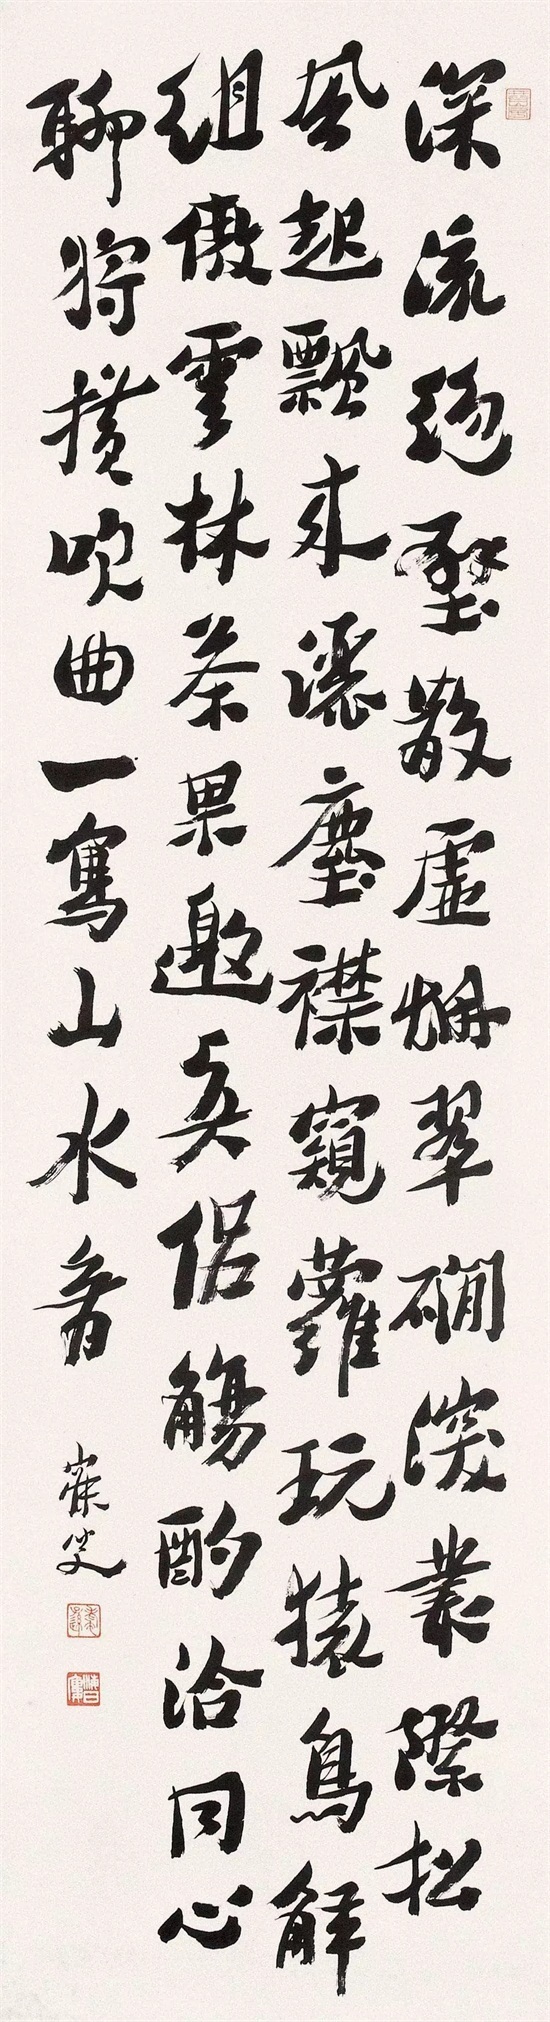 深流絕壑散虛翠磵深叢際松
風起飄來灑塵襟窺蘿玩猿鳥解
組傲雲林茶果邀真侶觴酌洽同心
聊將橫吹曲一寫山水音
寐叟